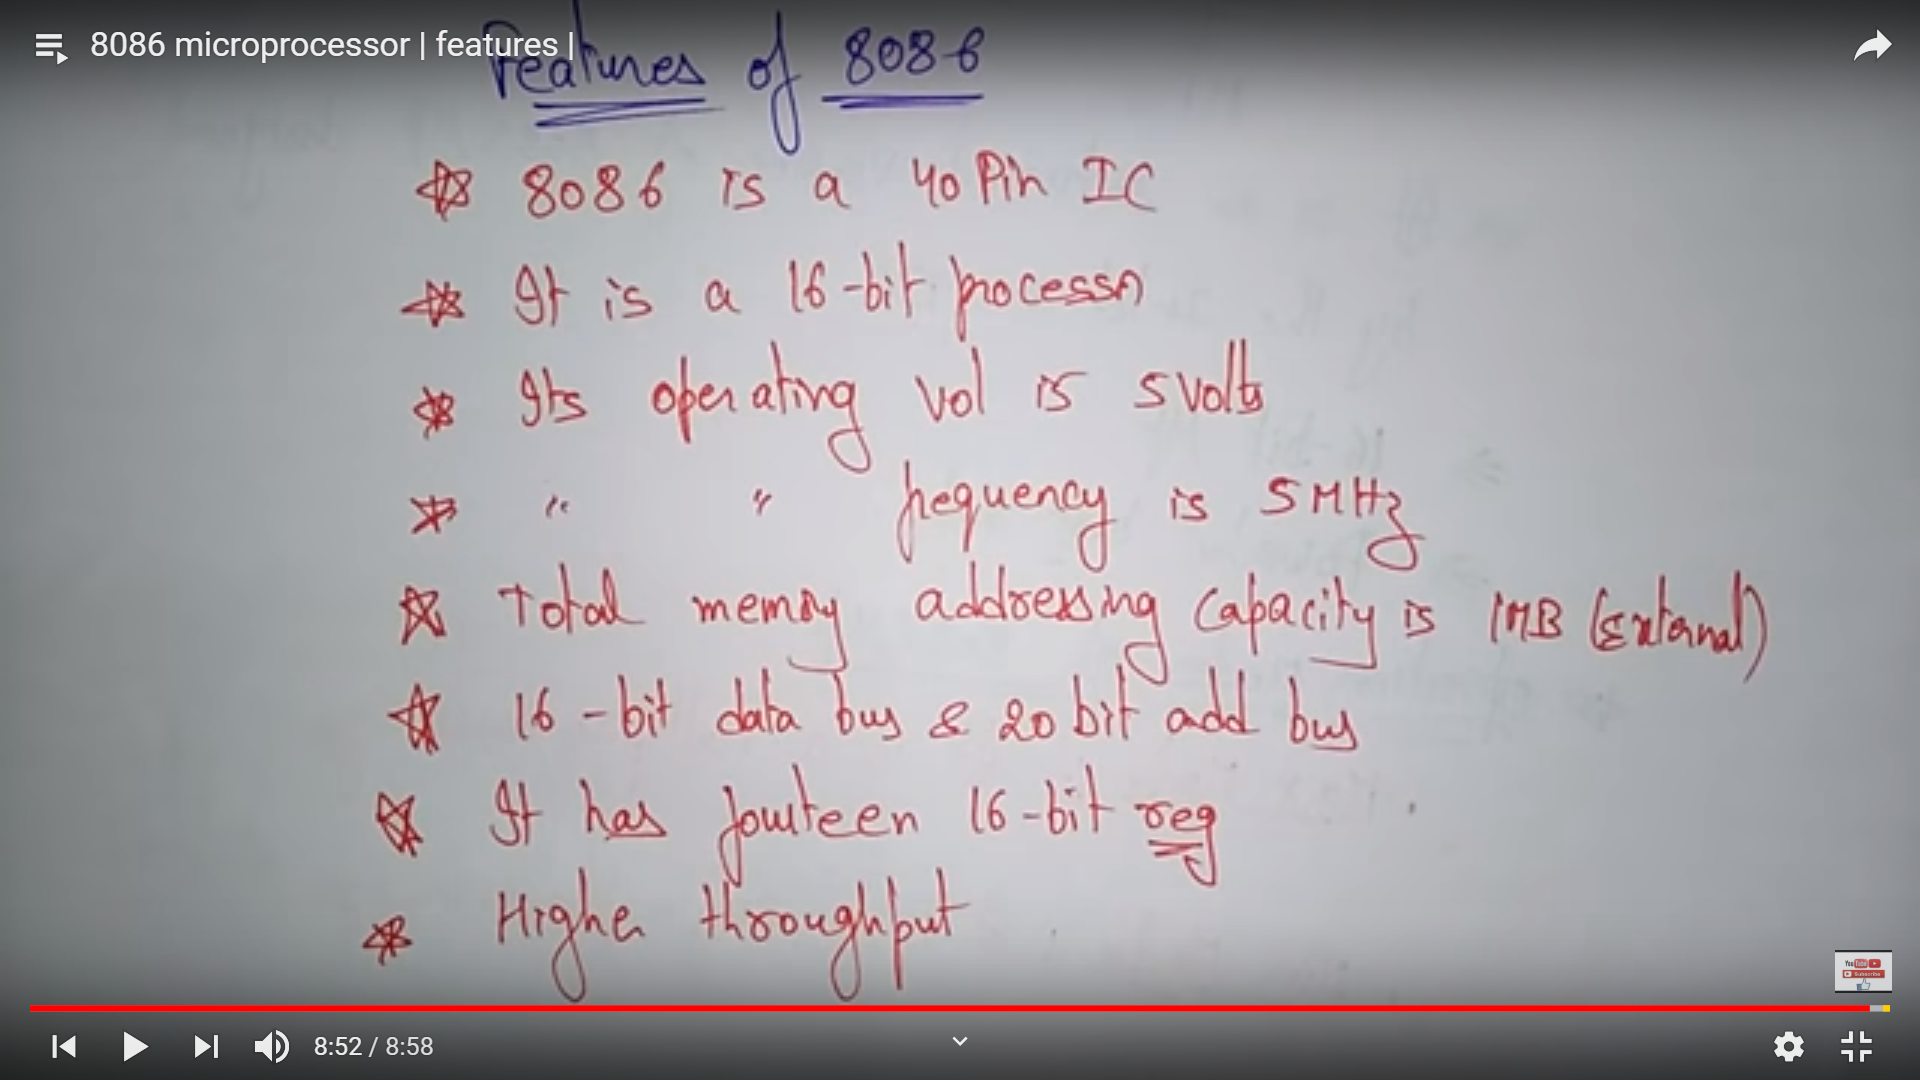 8086 microprocessor | features |
Features of 8086
8086 is a 40 Pin IC
It is a 16-bit processor
Its operating vol is 5 volts
" " frequency is 5 MHz
Total memory addressing capacity is 1MB (External)
16-bit data bus & 20 bit add bus
It has fourteen 16-bit reg
Higher throughput
YouTube
Subscribe
8:52 / 8:58